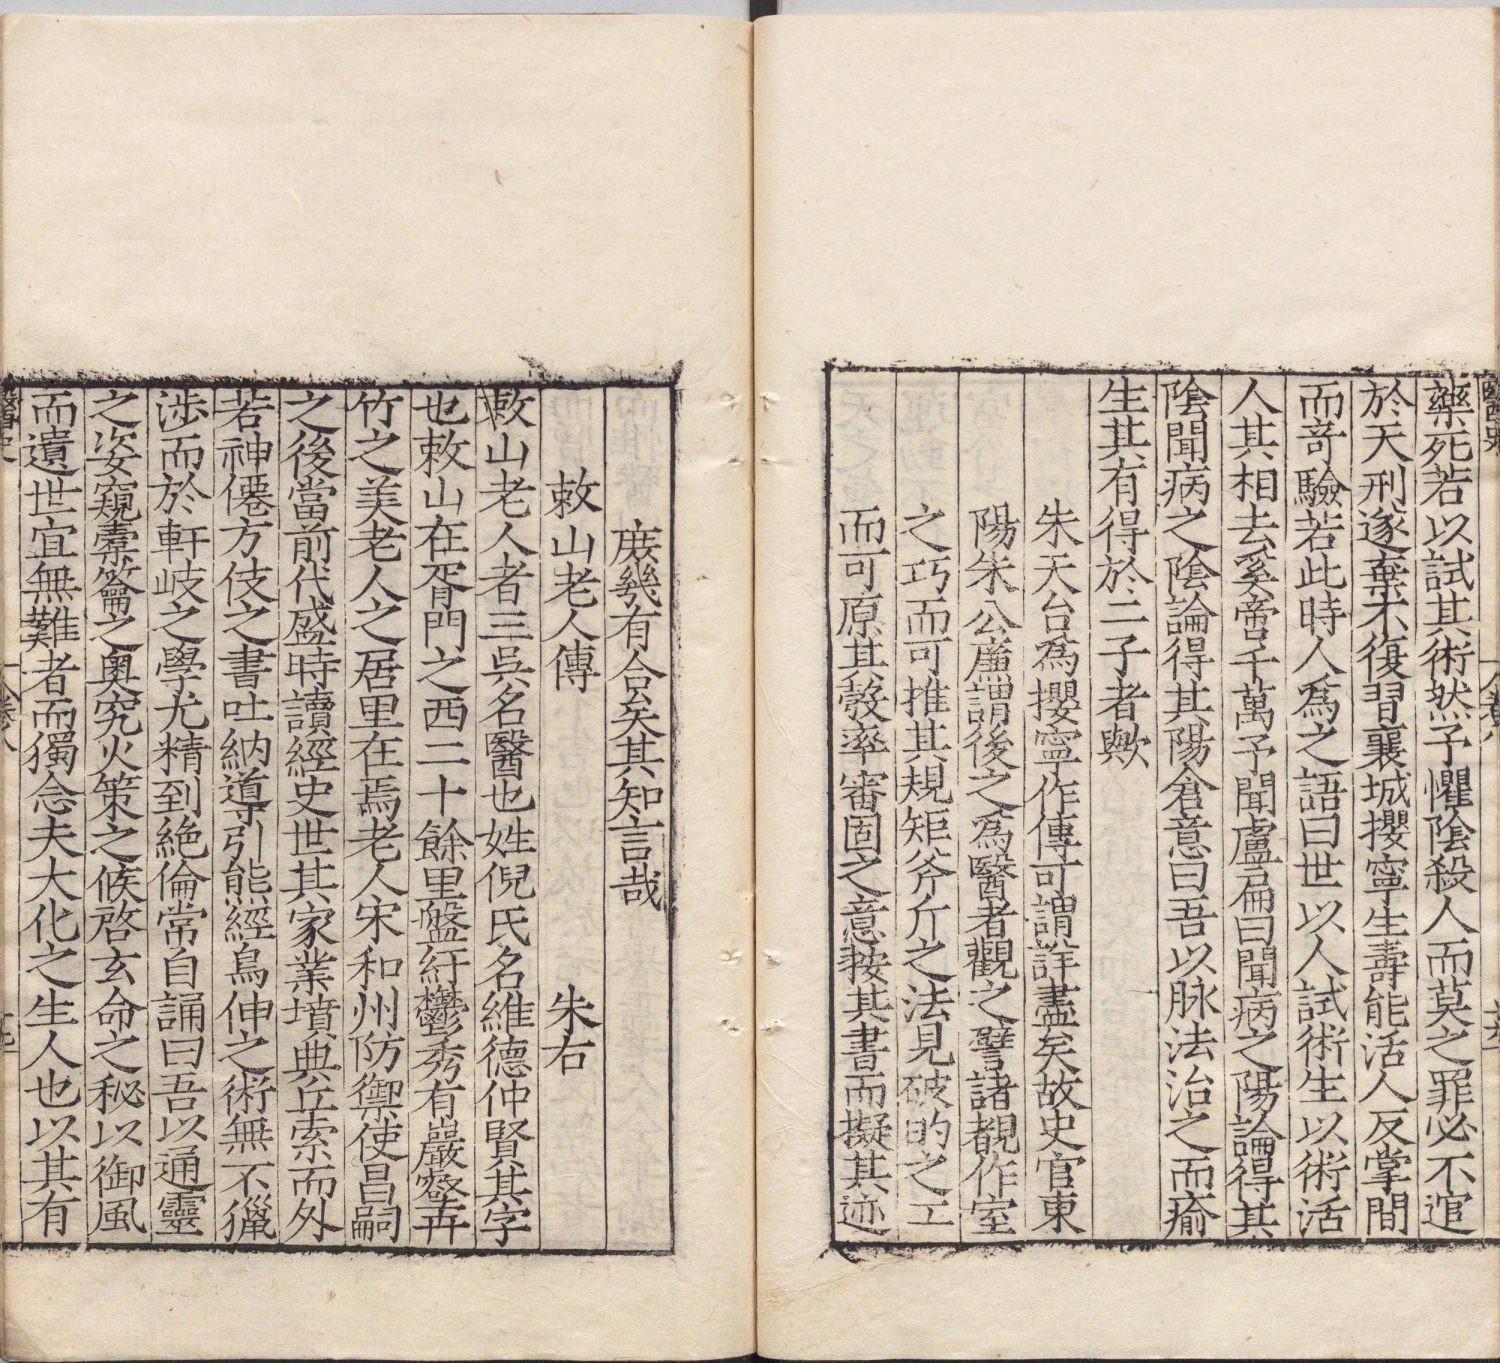 藥死若以試其術然予懼陰殺人而莫之罪必不逭
於天刑遂棄不復習襄城攖寧生壽能活人反掌間
而竒驗若此時人爲之語曰世以人試術生以術活
人其相去奚啻千萬予聞盧扁曰聞病之陽論得其
陰聞病之陰論得其陽倉意曰吾以脉法治之而瘉
生其有得於二子者歟
朱天台爲攖寧作傳可謂詳盡矣故史官東
陽朱公廉謂後之爲醫者觀之譬諸覩作室
之巧而可推其規矩斧斤之法見破的之工
而可原其彀率審固之意按其書而擬其迹
庶幾有合矣其知言哉
敕山老人傳 朱右
敕山老人者三吳名醫也姓倪氏名維德仲賢其字
也敕山在胥門之西二十餘里盤紆鬱秀有巖壑卉
竹之美老人之居里在焉老人宋和州防禦使昌嗣
之後當前代盛時讀經史世其家業墳典丘索而外
若神僊方伎之書吐納導引熊經鳥伸之術無不獵
涉而於軒岐之學尤精到絶倫常自誦曰吾以通靈
之姿窺橐籥之奧究火策之候啓玄命之秘以御風
而遺世宜無難者而獨念夫大化之生人也以其有
醫史
卷八